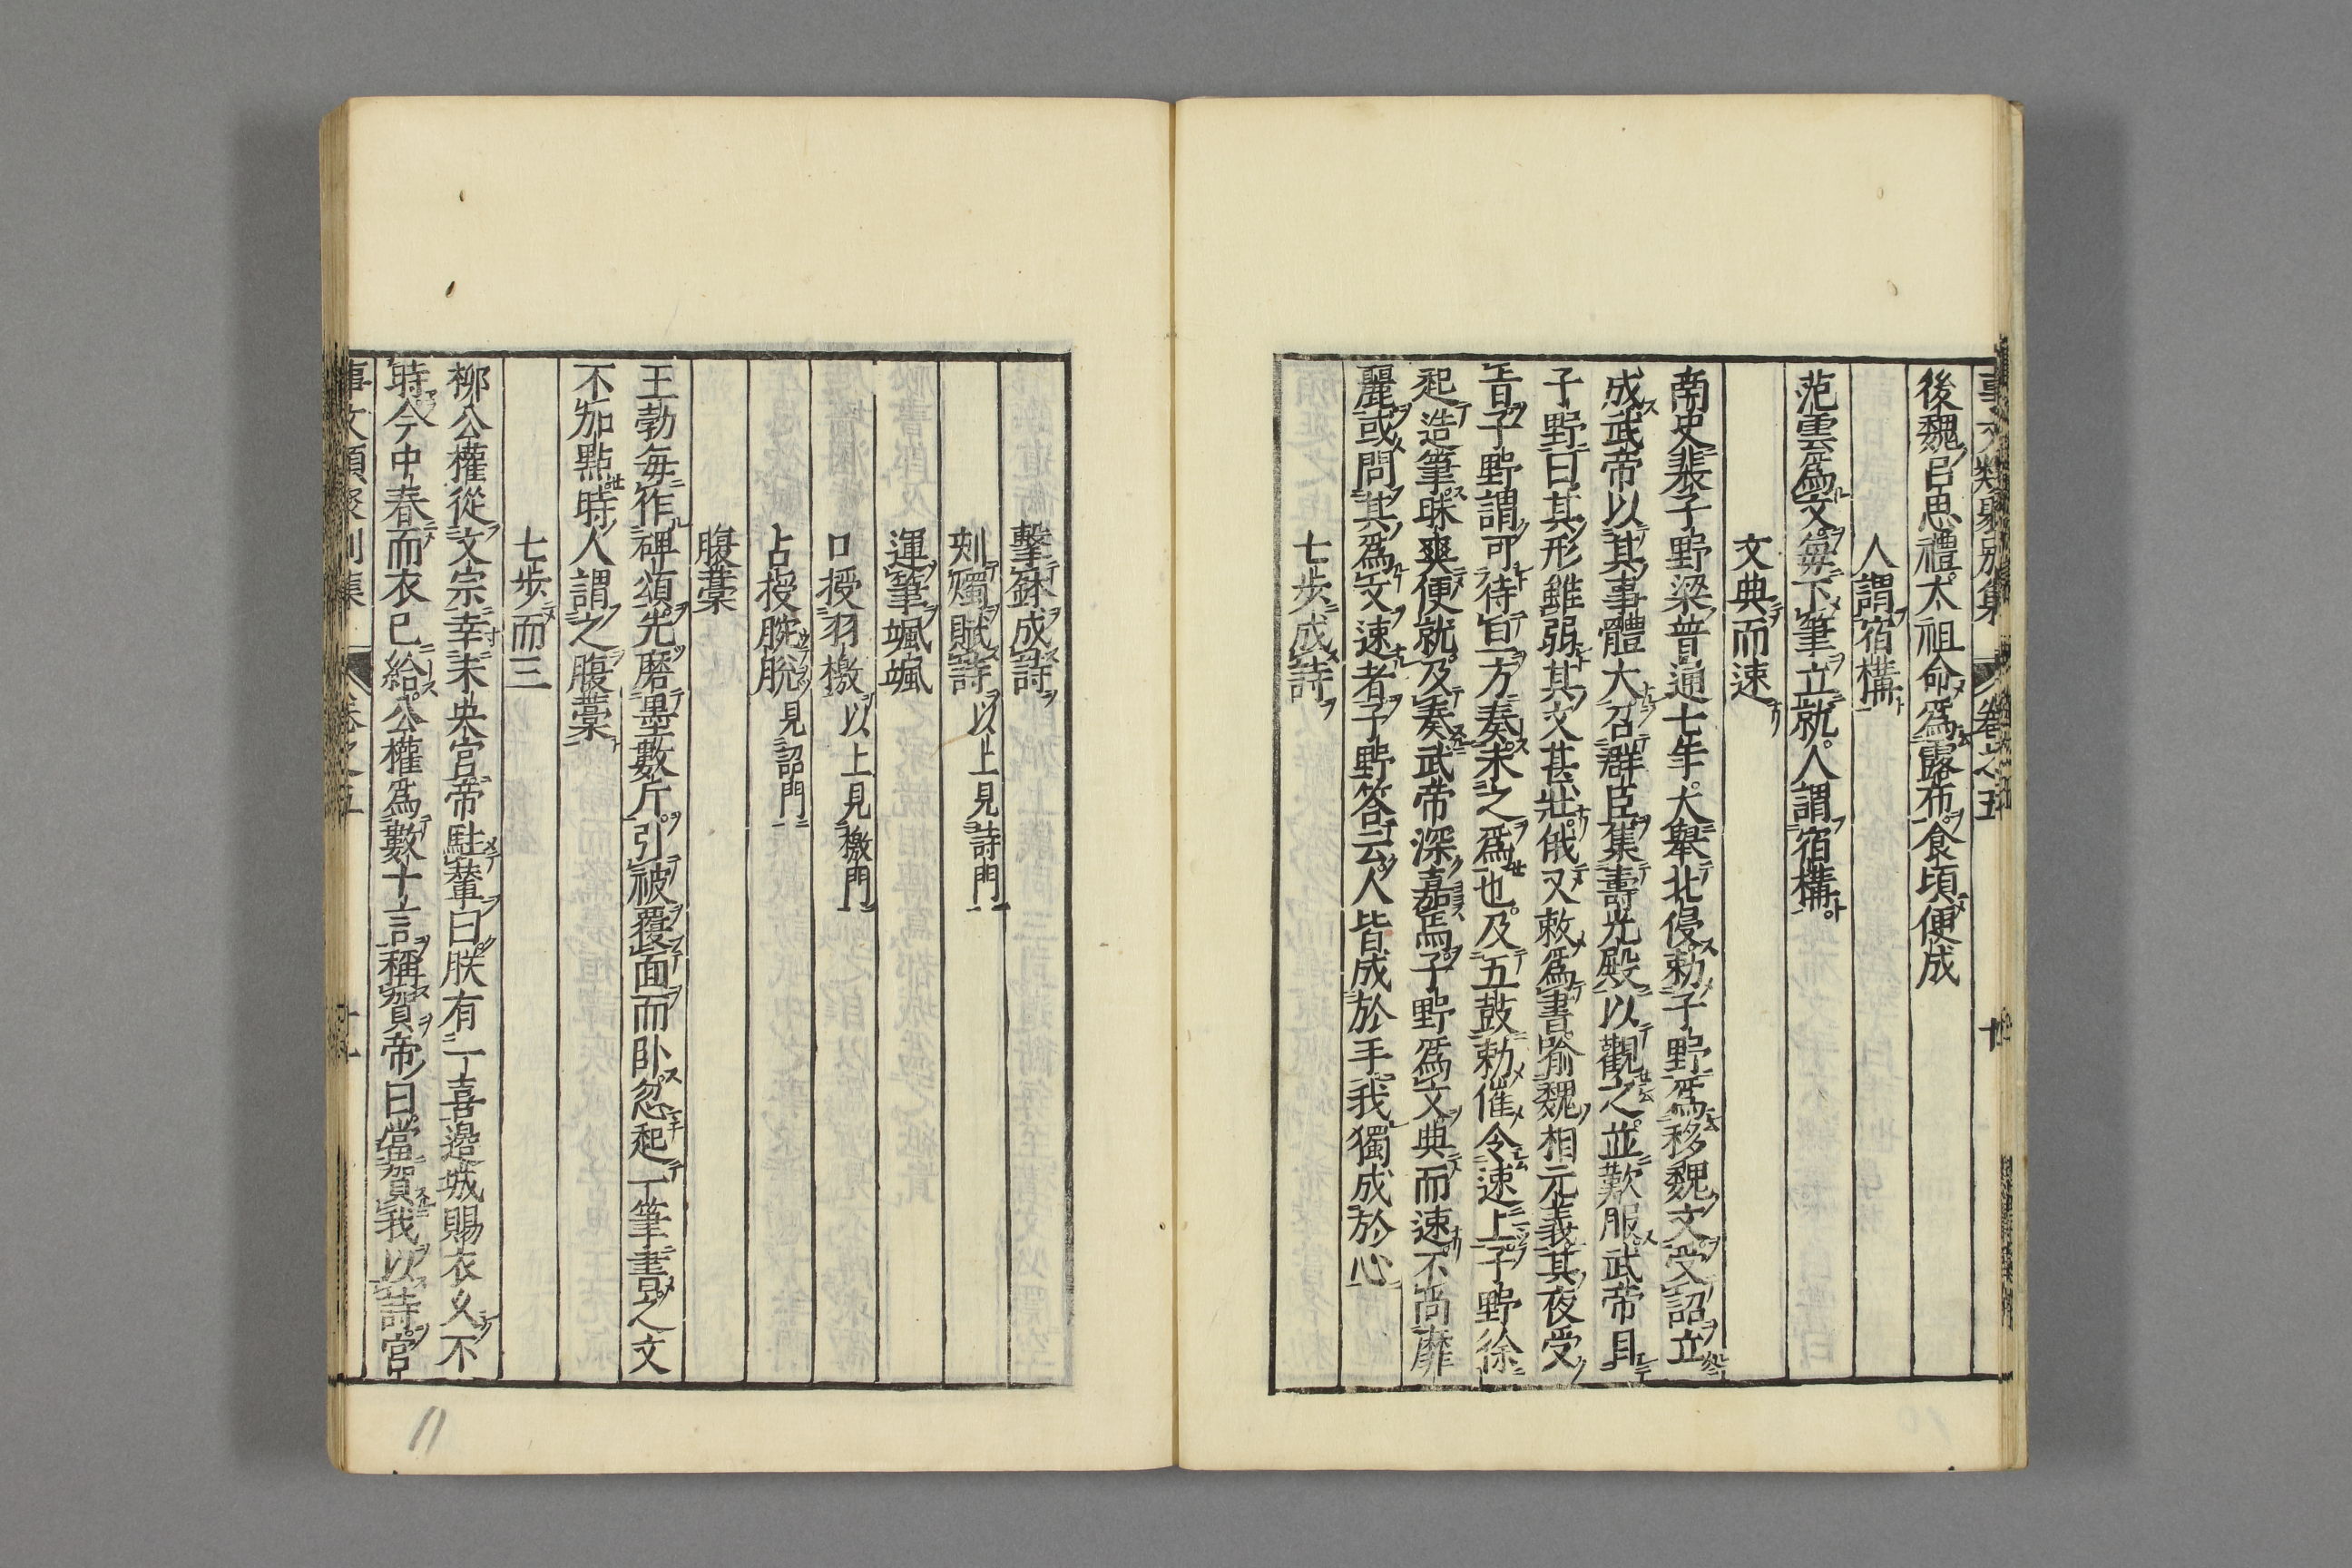 事文類聚別集 卷之五 十
後魏呂思禮太祖命爲露布食頃便成
人謂宿構
范雲爲文每下筆立就人謂宿構
文典而速
南史裴子野梁普通七年大舉北侵勅子野爲移魏文受詔立
成武帝以其事體大召群臣集壽光殿以觀之並歎服武帝目
子野曰其形雖弱其文甚壯俄又敕爲書喻魏相元義其夜受
旨子野謂可待旦方奏未之爲也及五鼓勅催令速上子野徐
起造筆昧爽便就及奏武帝深嘉焉子野爲文典而速不尚靡
麗或問其爲文速者子野答云人皆成於手我獨成於心
七步成詩
擊鉢成詩
刻燭賦詩以上見詩門
運筆颯颯
口授羽檄以上見檄門
占授腕脫見詔門
腹藁
王勃每作碑頌先磨墨數斤引被覆面而卧忽起一筆書之文
不加點時人謂之腹藁
七步而三
柳公權從文宗幸未央宮帝駐輦曰朕有一喜邊城賜衣久不
時今中春而衣已給公權爲數十言稱賀帝曰當賀我以詩宮
事文類聚別集 卷之五 十一
11